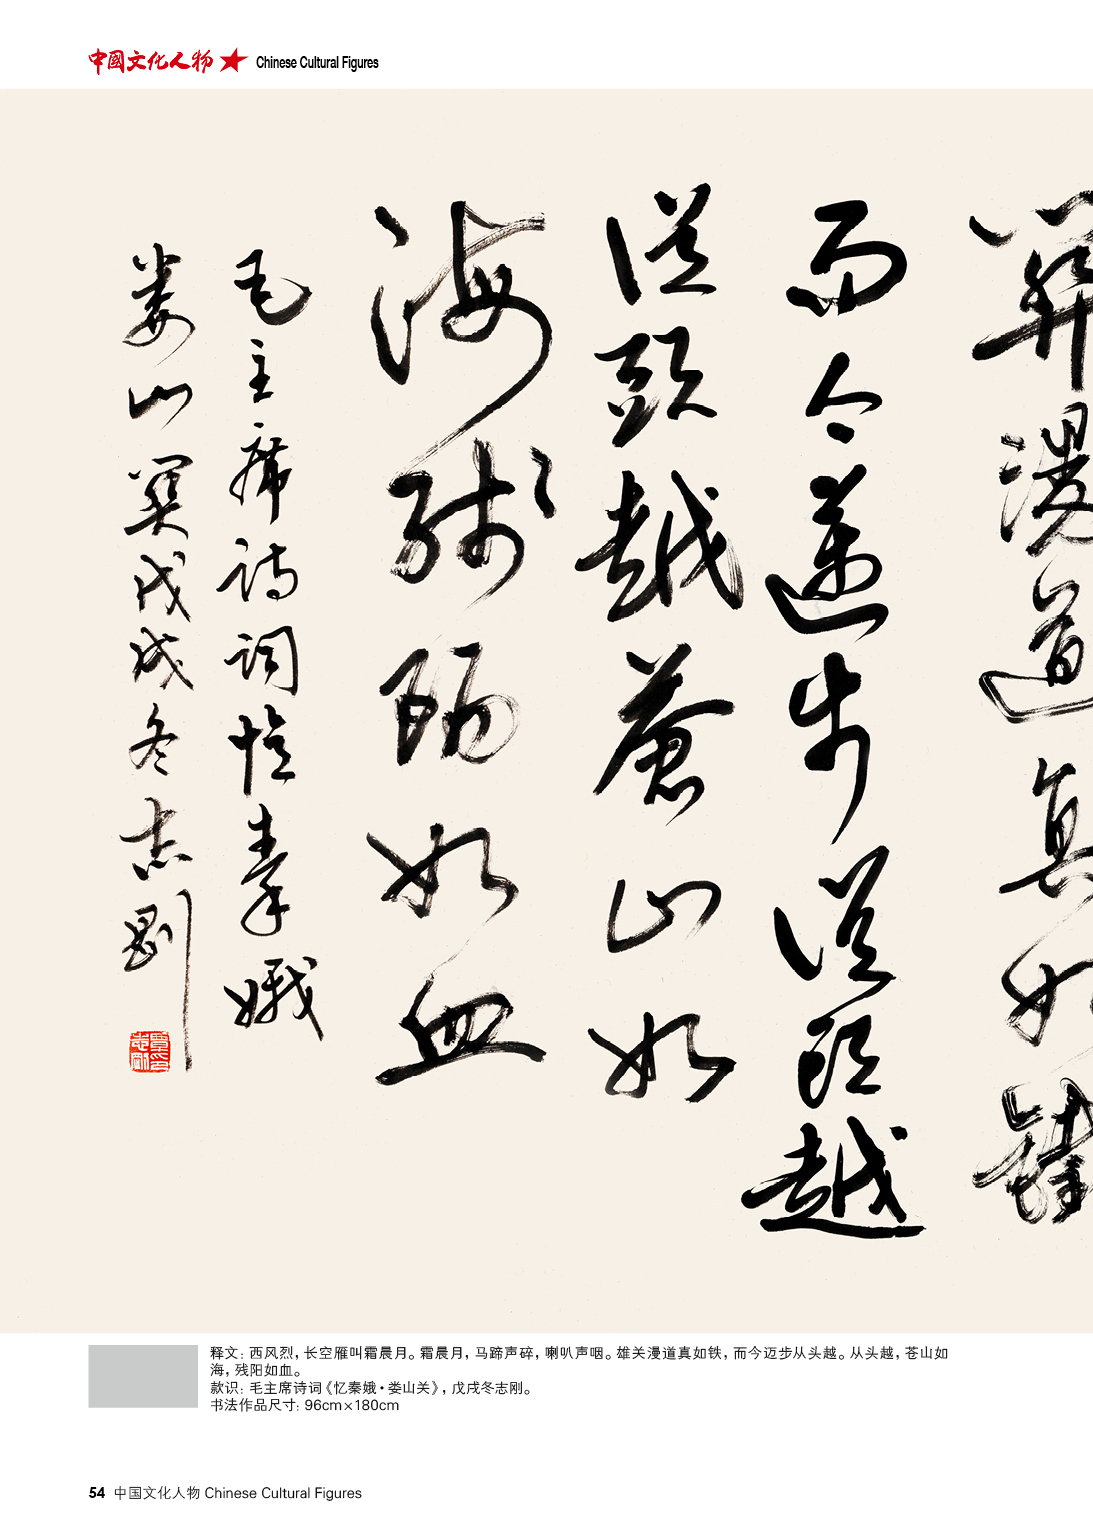 中國文化人物 Chinese Cultural Figures
關漫道真如鐵
而今邁步從頭越
從頭越蒼山如
海殘陽如血
毛主席诗词憶秦娥
娄山关戊戌冬志剛
释文: 西风烈，长空雁叫霜晨月。霜晨月，马蹄声碎，喇叭声咽。雄关漫道真如铁，而今迈步从头越。从头越，苍山如
海，残阳如血。
款识: 毛主席诗词《忆秦娥·娄山关》，戊戌冬志刚。
书法作品尺寸: 96cm×180cm
54 中国文化人物 Chinese Cultural Figures